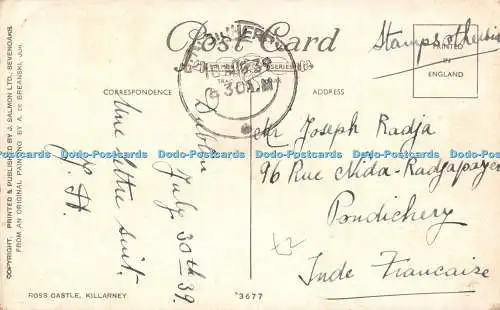 Post Card
Stamps otherside
PRINTED
IN
ENGLAND
CORRESPONDENCE
ADDRESS
Dublin
July 30th 39.
Une lettre suit.
J. H.
Mr Joseph Radja
96 Rue Nida-Radjapayer
Pondichery
Inde Francaise
£2
COPYRIGHT. PRINTED & PUBLISHED BY J. SALMON LTD., SEVENOAKS.
FROM AN ORIGINAL PAINTING BY A. DE BREANSKI, JUR.
ROSS CASTLE, KILLARNEY
*3677
Dodo-Postcards Dodo-Postcards Dodo-Postcards Dodo-Postcards Dodo-Postcards